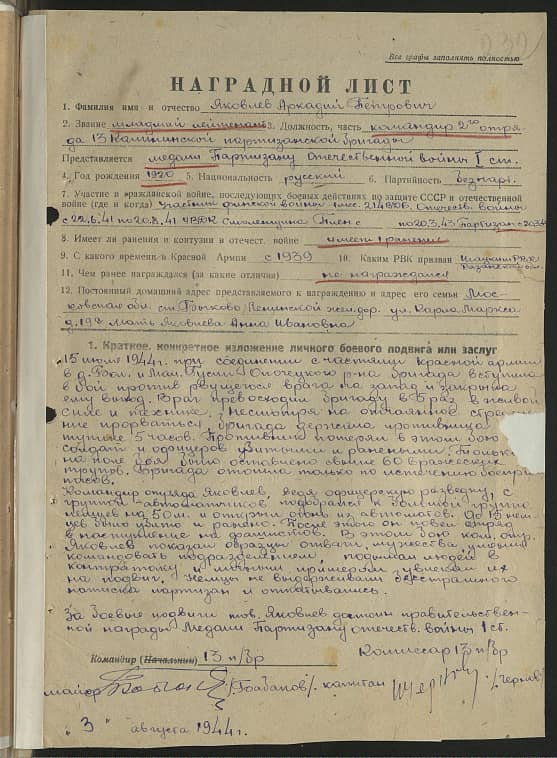 Все графы заполнять полностью
НАГРАДНОЙ ЛИСТ
1. Фамилия имя и отчество Яковлев Аркадий Петрович
2. Звание младший лейтенант 3. Должность, часть командир 2го отря-
да 13 Калининской партизанской бригады
Представляется медали Партизану Отечественной войны I ст.
4. Год рождения 1920 5. Национальность русский 6. Партийность безпарт.
7. Участие в гражданской войне, последующих боевых действиях по защите СССР и отечественной
войне (где и когда) Участник финской войны Отечеств. войны
с 22.6.41 по 20.8.41 Смоленщина Плен с по 20.3.43 Партизан с 20.3.43
8. Имеет ли ранения и контузии в отечест. войне имеет 1 ранение
9. С какого времени в Красной Армии с 1939 10. Каким РВК призван
11. Чем ранее награждался (за какие отличия) не награждался
12. Постоянный домашний адрес представляемого к награждению и адрес его семьи Мос-
ковская обл. ст. Быково, Ленинской ж. дор. ул. Карла Маркса
д. 19 Мать Яковлева Анна Ивановна
1. Краткое, конкретное изложение личного боевого подвига или заслуг
15 июля 1944 г. при соединении с частями красной армии
в д. Бол. и Мал. Гусин Опочецкого р-на бригада вступила
в бой против рвущегося врага на запад и закрыла
ему выход. Враг превосходил бригаду в 8 раз в живой
силе и технике. Несмотря на отчаянное стремле-
ние прорваться, бригада держала противника
5 часов. Противник потерял в этом бою
солдат и офицеров убитыми и ранеными. Только
на поле боя было оставлено свыше 60 вражеских
трупов. Бригада отошла только по истечению боепри-
пасов.
Командир отряда Яковлев, ведя офицерскую разведку, с
группой автоматчиков подобрался к большой группе
немцев на 50 м. и открыли огонь из автоматов. До 15 нем-
цев было убито и ранено. После этого он повел отряд
в наступление на фашистов. В этом бою ком. отр.
Яковлев показал образцы отваги, мужества, умения
командовать подразделением, поднимал людей в
контратаку и личным примером увлекал их
на подвиг. Немцы не выдерживали бесстрашного
натиска партизан и откатывались.
За боевые подвиги тов. Яковлев достоин правительствен-
ной награды Медали Партизану отечеств. войны 1 ст.
Командир (Начальник) 13 п/бр Комиссар 13 п/бр
майор /Бобанов/. капитан
"3" августа 1944 г.